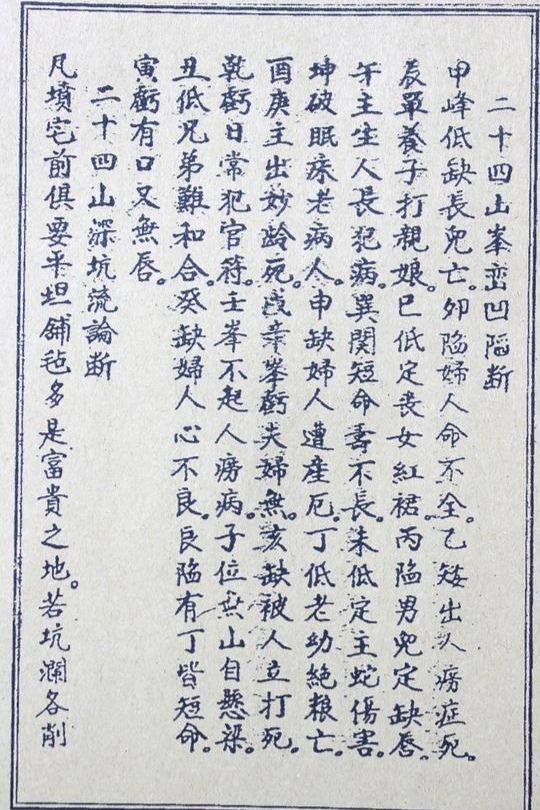 二十四山峯巒凹陷断
甲峰低缺長兒亡。卯陷婦人命不全。乙矮出人癆症死。
辰單養子打親娘。巳低定丧女紅裙。丙陷男兒定缺唇。
午主生人長犯病。巽関短命壽不長。未低定主蛇傷害。
坤破眠床老病人。申缺婦人遭産厄。丁低老幼絶粮亡。
酉庚主出妙龄死。戌辛峯虧夫婦無。亥缺被人立打死。
乾虧日常犯官符。壬峯不起人癆病。子位無山自懸梁。
丑低兄弟難和合。癸缺婦人心不良。艮陷有丁皆短命。
寅虧有口又無唇。
二十四山深坑流論断
凡墳宅前俱要平坦舖毡多是富貴之地。若坑瀾各削